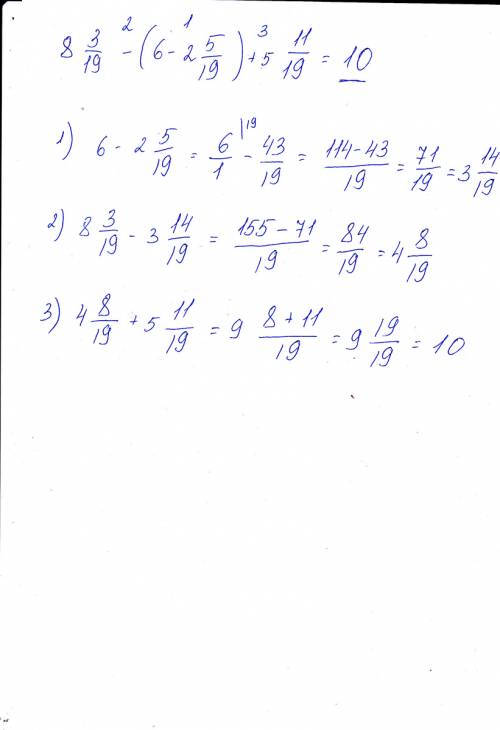 8 3/19 - (6 - 2 5/19) + 5 11/19 = 10
2 1 3
1) 6 - 2 5/19 = 6/1 |19 - 43/19 = 114-43/19 = 71/19 = 3 14/19
2) 8 3/19 - 3 14/19 = 155-71/19 = 84/19 = 4 8/19
3) 4 8/19 + 5 11/19 = 9 8+11/19 = 9 19/19 = 10